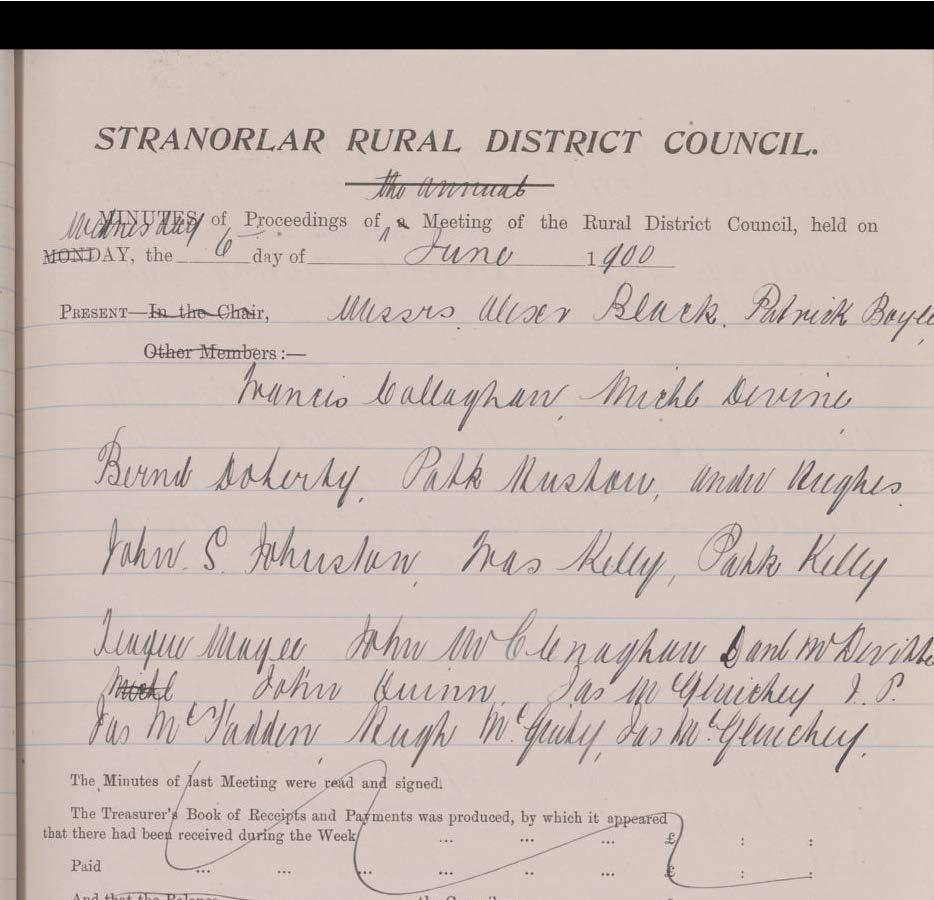 STRANORLAR RURAL DISTRICT COUNCIL.
the annual
MINUTES of Proceedings of a Meeting of the Rural District Council, held on
Wednesday
MONDAY, the 6 day of June 1900
PRESENT—In the Chair, Messrs Alexr Black, Patrick Boyle,
Other Members:—
Francis Callaghan, Michl Devine,
Bernd Doherty, Patk Huston, Andw Hughes.
John S. Johnston, Fras Kelly, Patk Kelly
Teague Magee John McClenaghan Danl McDevitte
Michl John Quinn, Jas McGlinchey J.P.
Jas McFadden Hugh McGinty, Jas McGlinchey,
The Minutes of last Meeting were read and signed.
The Treasurer's Book of Receipts and Payments was produced, by which it appeared
that there had been received during the Week ... ... ... £ : :
Paid ... ... ... .. ... £ : :
And that the Balance the Council